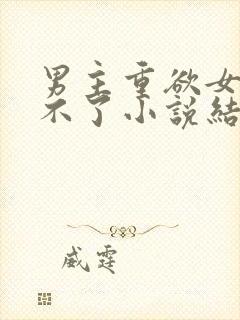 男主重欲女
不了小説結
威霆